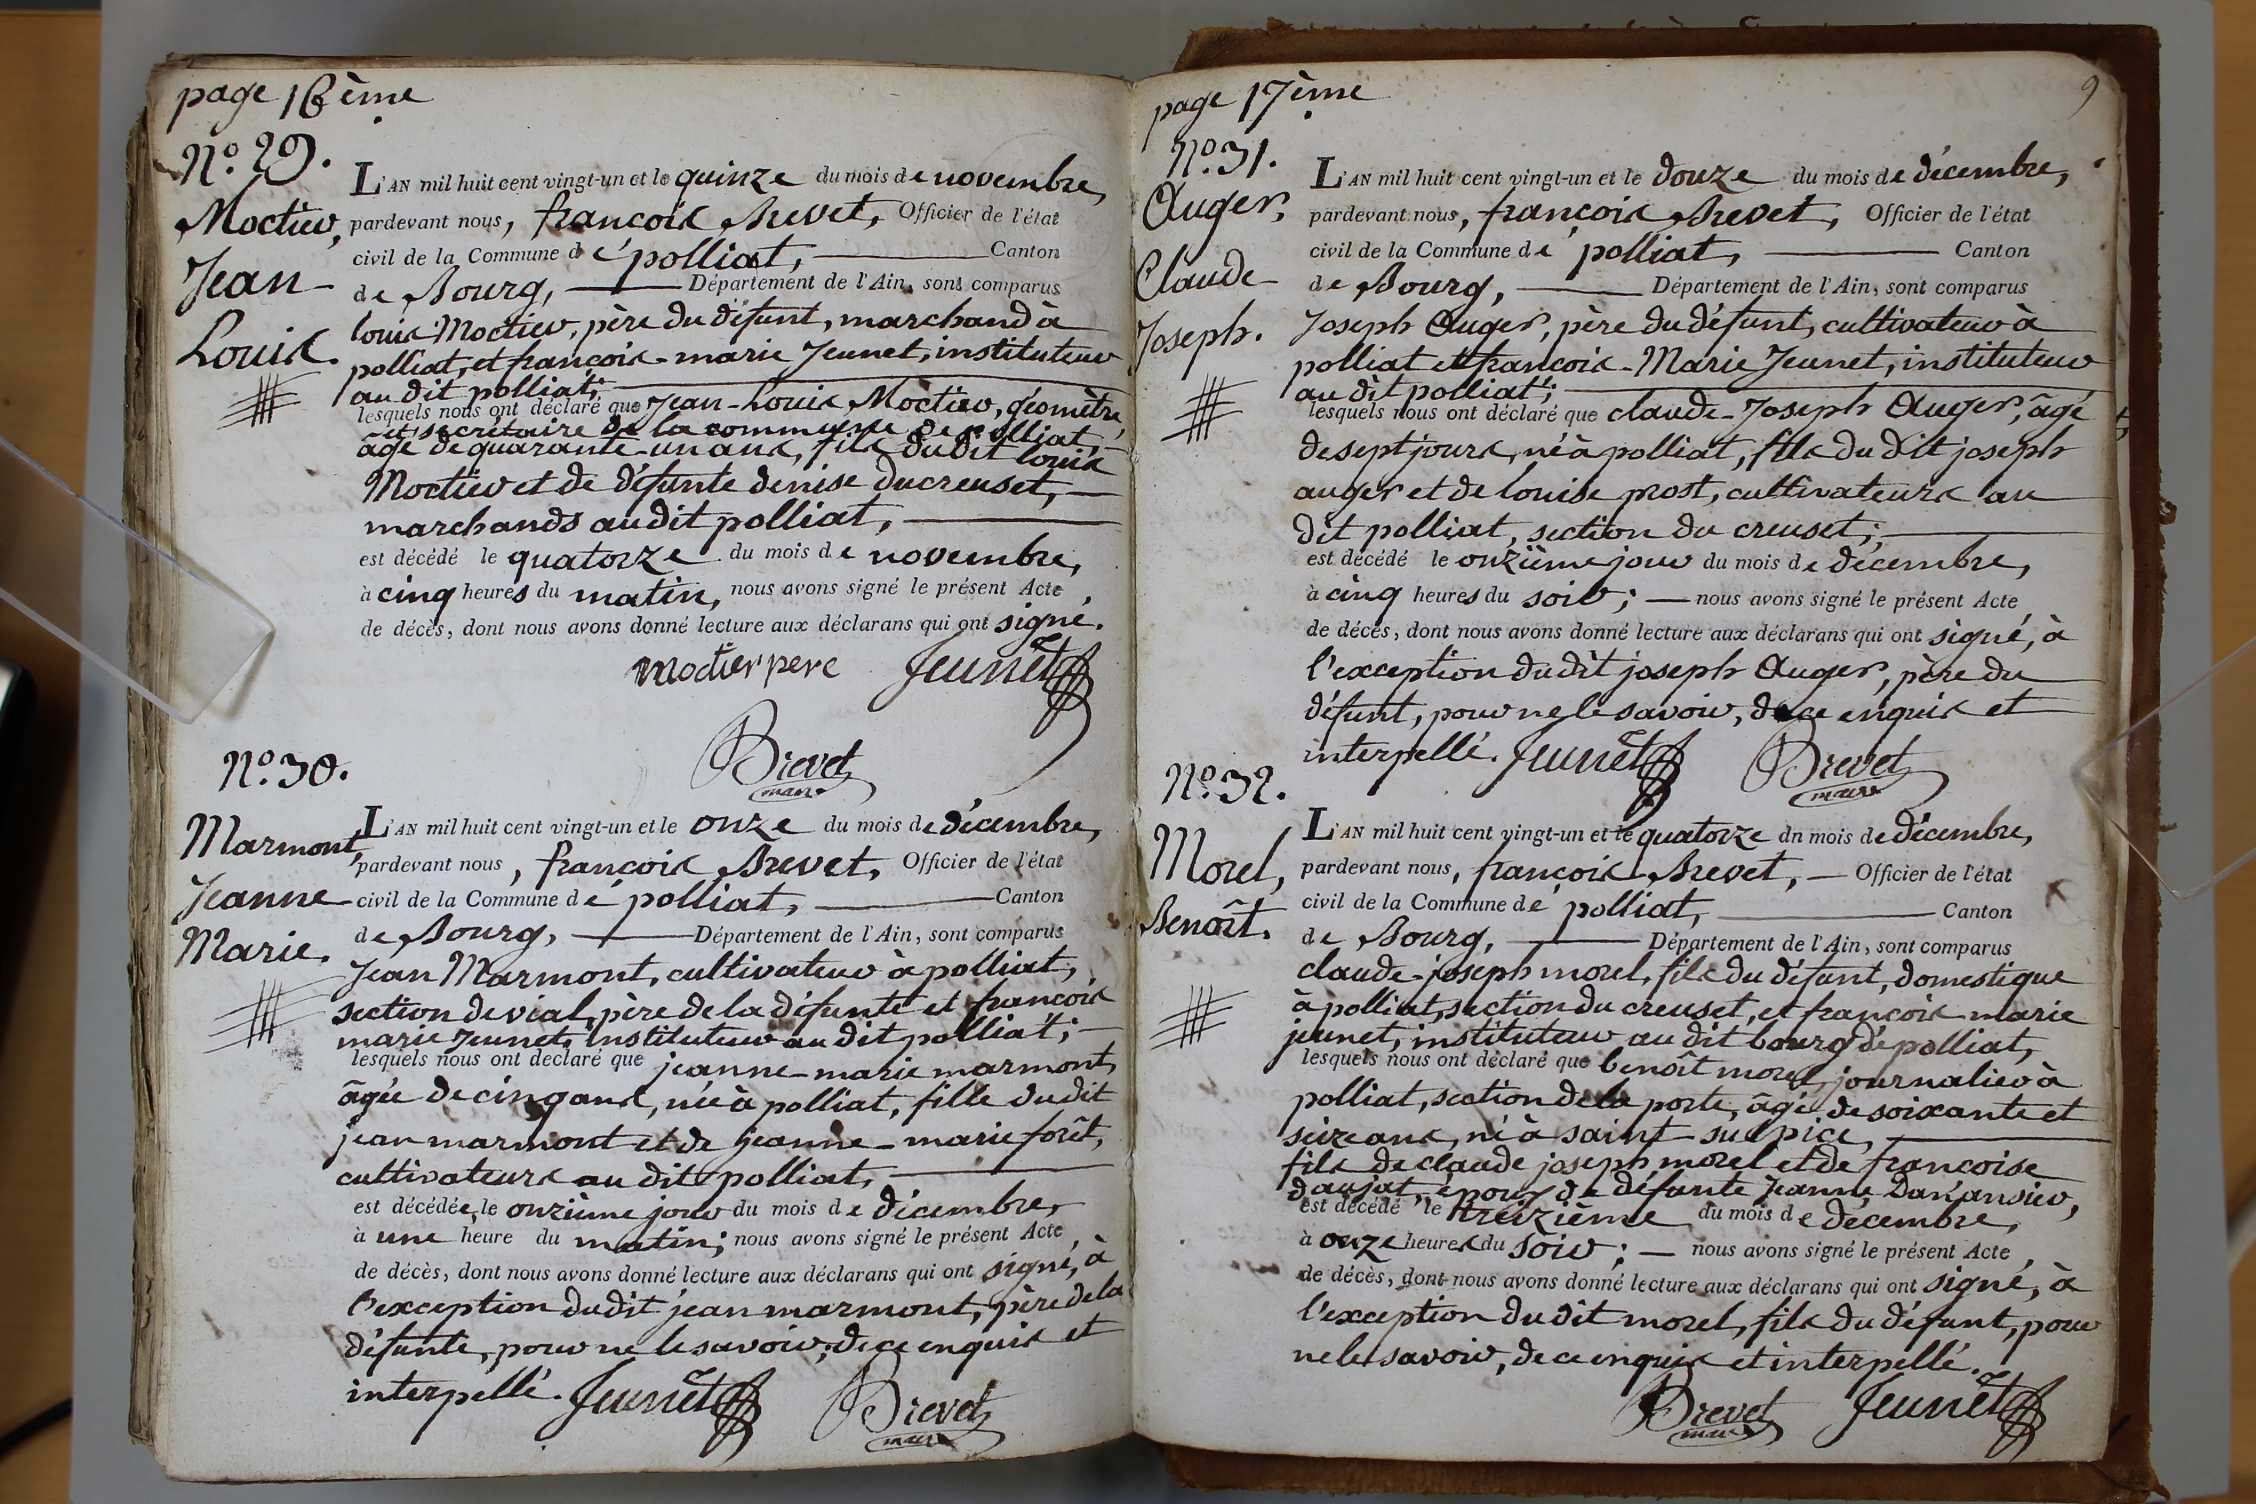 page 16ème
N.º 29.
Moctier,
Jean-
Louis.
L'AN mil huit cent vingt-un et le quinze du mois de novembre,
pardevant nous, françois Brevet, Officier de l'état
civil de la Commune de polliat, Canton
de Bourg, Département de l'Ain, sont comparus
louis Moctier, père du défunt, marchand à
polliat, et françois-marie Jeunet, instituteur
au dit polliat;
lesquels nous ont déclaré que Jean-Louis Moctier, géomètre,
et secrétaire de la commune de polliat,
âgé de quarante-un ans, fils du dit louis
Moctier et de défunte denise ducreuset,
marchands au dit polliat,
est décédé le quatorze du mois de novembre,
à cinq heures du matin, nous avons signé le présent Acte
de décès, dont nous avons donné lecture aux déclarans qui ont signé.
moctier pere Jeunet
Brevet
maire
N.º 30.
Marmont,
Jeanne-
Marie.
L'AN mil huit cent vingt-un et le onze du mois de décembre,
pardevant nous, françois Brevet, Officier de l'état
civil de la Commune de polliat, Canton
de Bourg, Département de l'Ain, sont comparus
Jean Marmont, cultivateur à polliat,
section de vial, père de la défunte et françois
marie Jeunet, instituteur au dit polliat;
lesquels nous ont déclaré que jeanne-marie marmont,
âgée de cinq ans, née à polliat, fille du dit
jean marmont et de jeanne-marie forêt,
cultivateurs au dit polliat,
est décédée, le onzième jour du mois de décembre,
à une heure du matin; nous avons signé le présent Acte
de décès, dont nous avons donné lecture aux déclarans qui ont signé, à
l'exception du dit jean marmont, père de la
défunte, pour ne le savoir, de ce enquis et
interpellé. Jeunet Brevet
maire
page 17ème
9
N.º 31.
Auger,
Claude
Joseph.
L'AN mil huit cent vingt-un et le douze du mois de décembre,
pardevant nous, françois Brevet, Officier de l'état
civil de la Commune de polliat, Canton
de Bourg, Département de l'Ain, sont comparus
Joseph Auger, père du défunt, cultivateur à
polliat et françois-Marie Jeunet, instituteur
au dit polliat;
lesquels nous ont déclaré que claude-Joseph Auger, âgé
de sept jours, né à polliat, fils du dit joseph
auger et de louise prost, cultivateurs au
dit polliat, section du creuset;
est décédé le onzième jour du mois de décembre,
à cinq heures du soir; nous avons signé le présent Acte
de décès, dont nous avons donné lecture aux déclarans qui ont signé, à
l'exception du dit joseph Auger, père du
défunt, pour ne le savoir, de ce enquis et
interpellé. Jeunet Brevet
maire
N.º 32.
Morel,
Benoît.
L'AN mil huit cent vingt-un et le quatorze dn mois de décembre,
pardevant nous, françois Brevet, Officier de l'état
civil de la Commune de polliat, Canton
de Bourg, Département de l'Ain, sont comparus
claude-joseph morel, fils du défunt, domestique
à polliat, section du creuset, et françois marie
jeunet, instituteur au dit bourg de polliat,
lesquels nous ont déclaré que benoît morel, journalier à
polliat, section de la porte, âgé de soixante et
seize ans, né à saint-sulpice,
fils de claude joseph morel et de françoise
daujat, époux de défunte Jeanne Danansier,
est décédé le treizième du mois de décembre,
à onze heures du soir; nous avons signé le présent Acte
de décès, dont nous avons donné lecture aux déclarans qui ont signé, à
l'exception du dit morel, fils du défunt, pour
ne le savoir, de ce enquis et interpellé.
Brevet Jeunet
maire